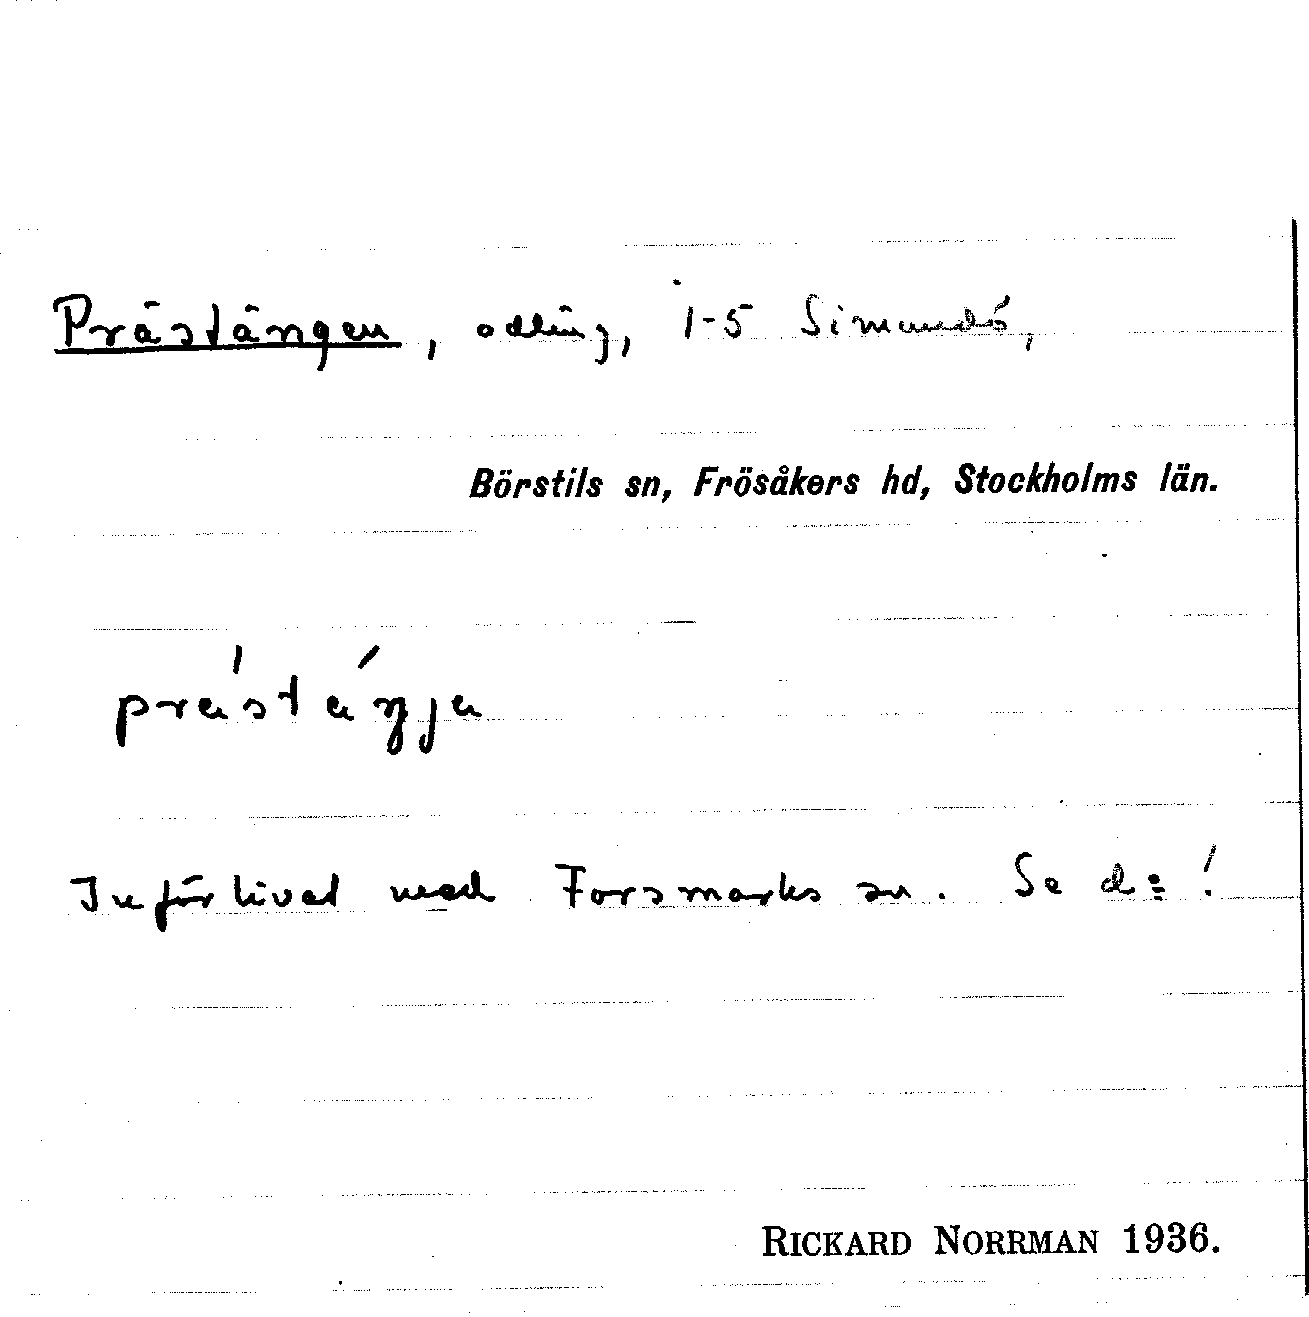 Prästängen, odling, 1-5 Simundö,
Börstils sn, Frösåkers hd, Stockholms län.
präståŋja
Införlivat med Forsmarks sn. Se d:o!
RICKARD NORRMAN 1936.